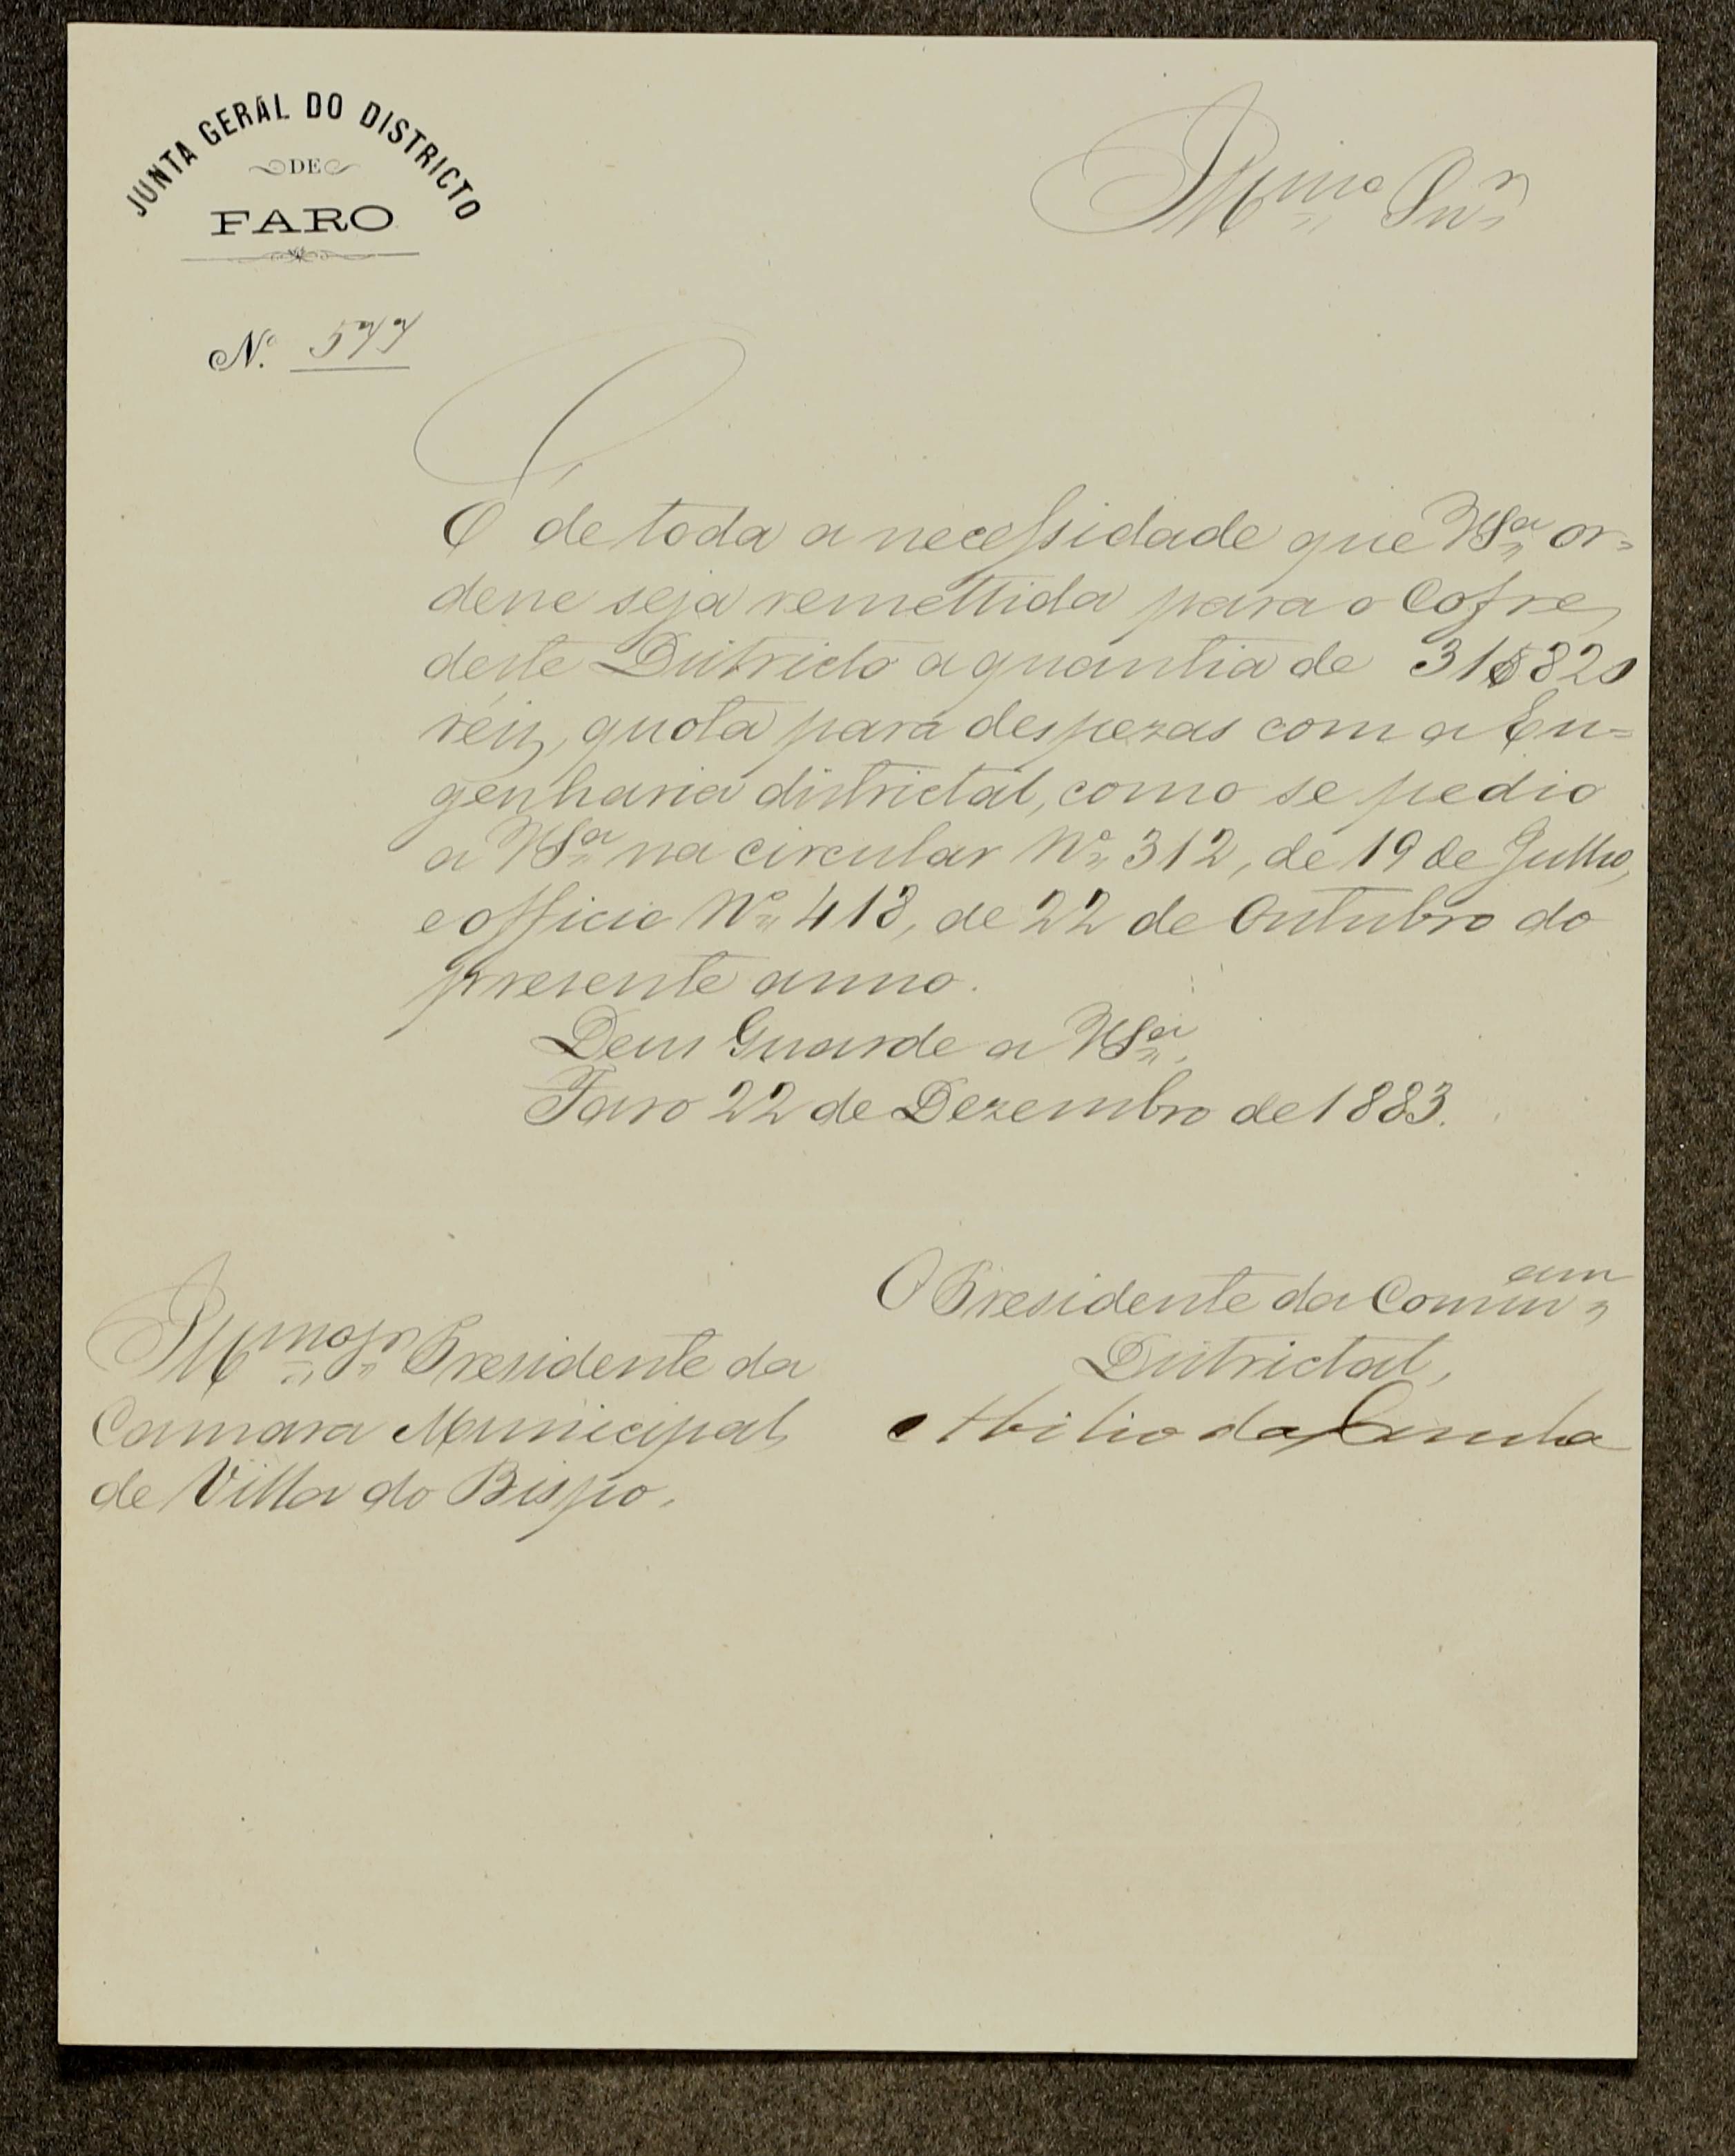 JUNTA GERAL DO DISTRICTO
DE
FARO
Illmo Snr
N.º 577
É de toda a necessidade que VSa or=
dene seja remettida para o Cofre
deste Districto a quantia de 31$820
reis, quota para despezas com a En=
genharia districtal, como se pedio
a VSa na circular Nº 312, de 19 de Julho,
e officio Nº 418, de 22 de Outubro do
presente anno.
Deus Guarde a VSa
Faro 22 de Dezembro de 1883.
O Presidente da Commam
Districtal,
Abilio da Cunha
Illmo Sr Presidente da
Camara Municipal
de Villa do Bispo.